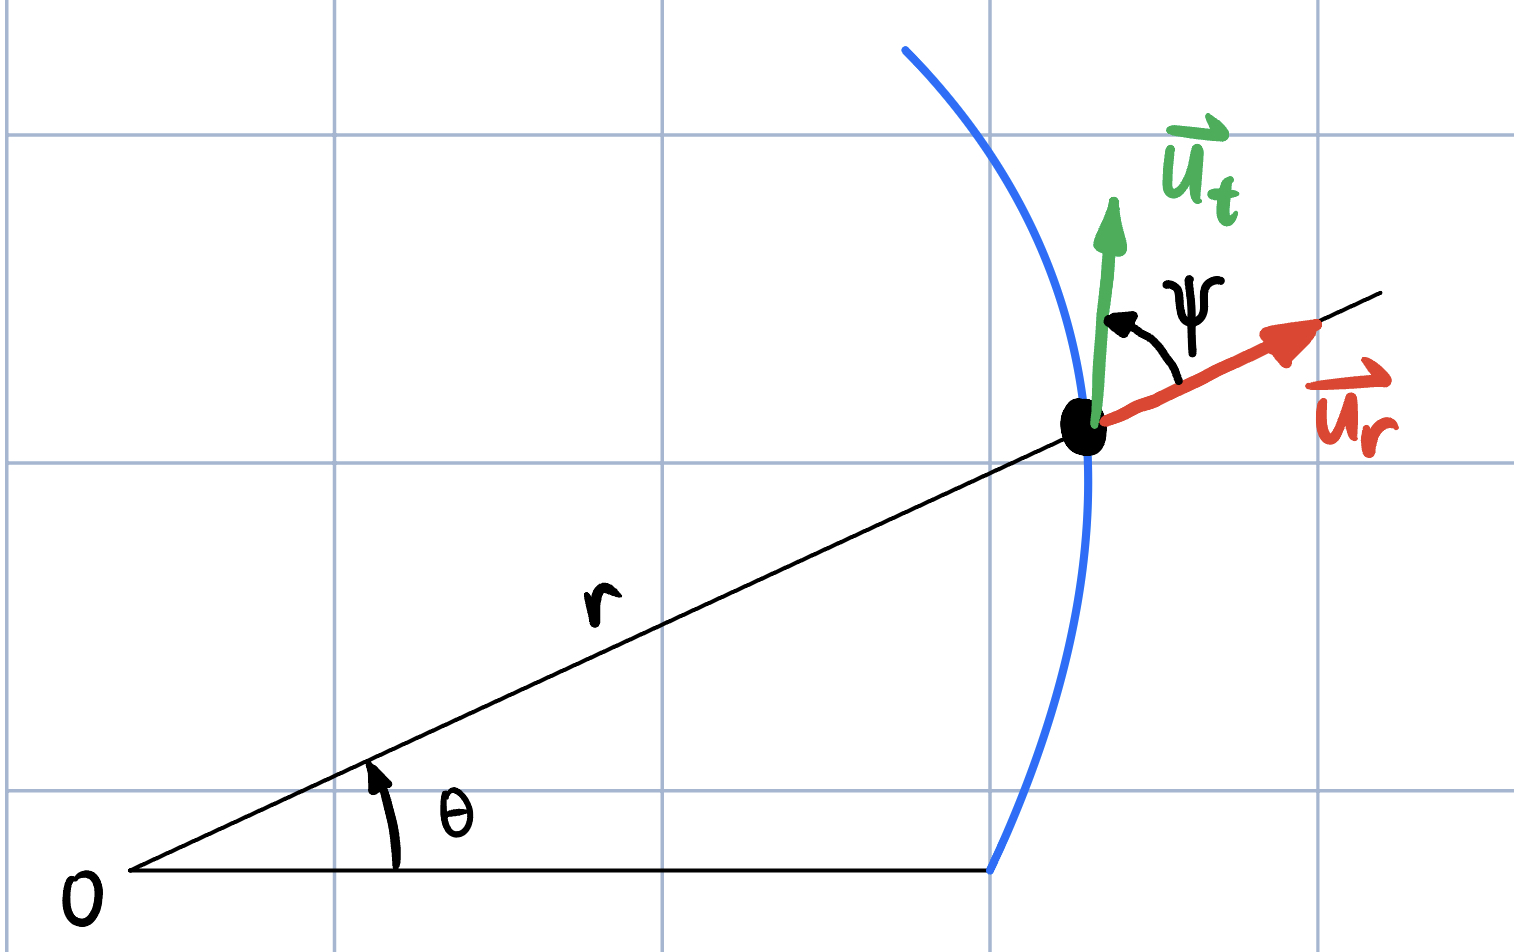 u⃗_t
ψ
u⃗_r
r
θ
O